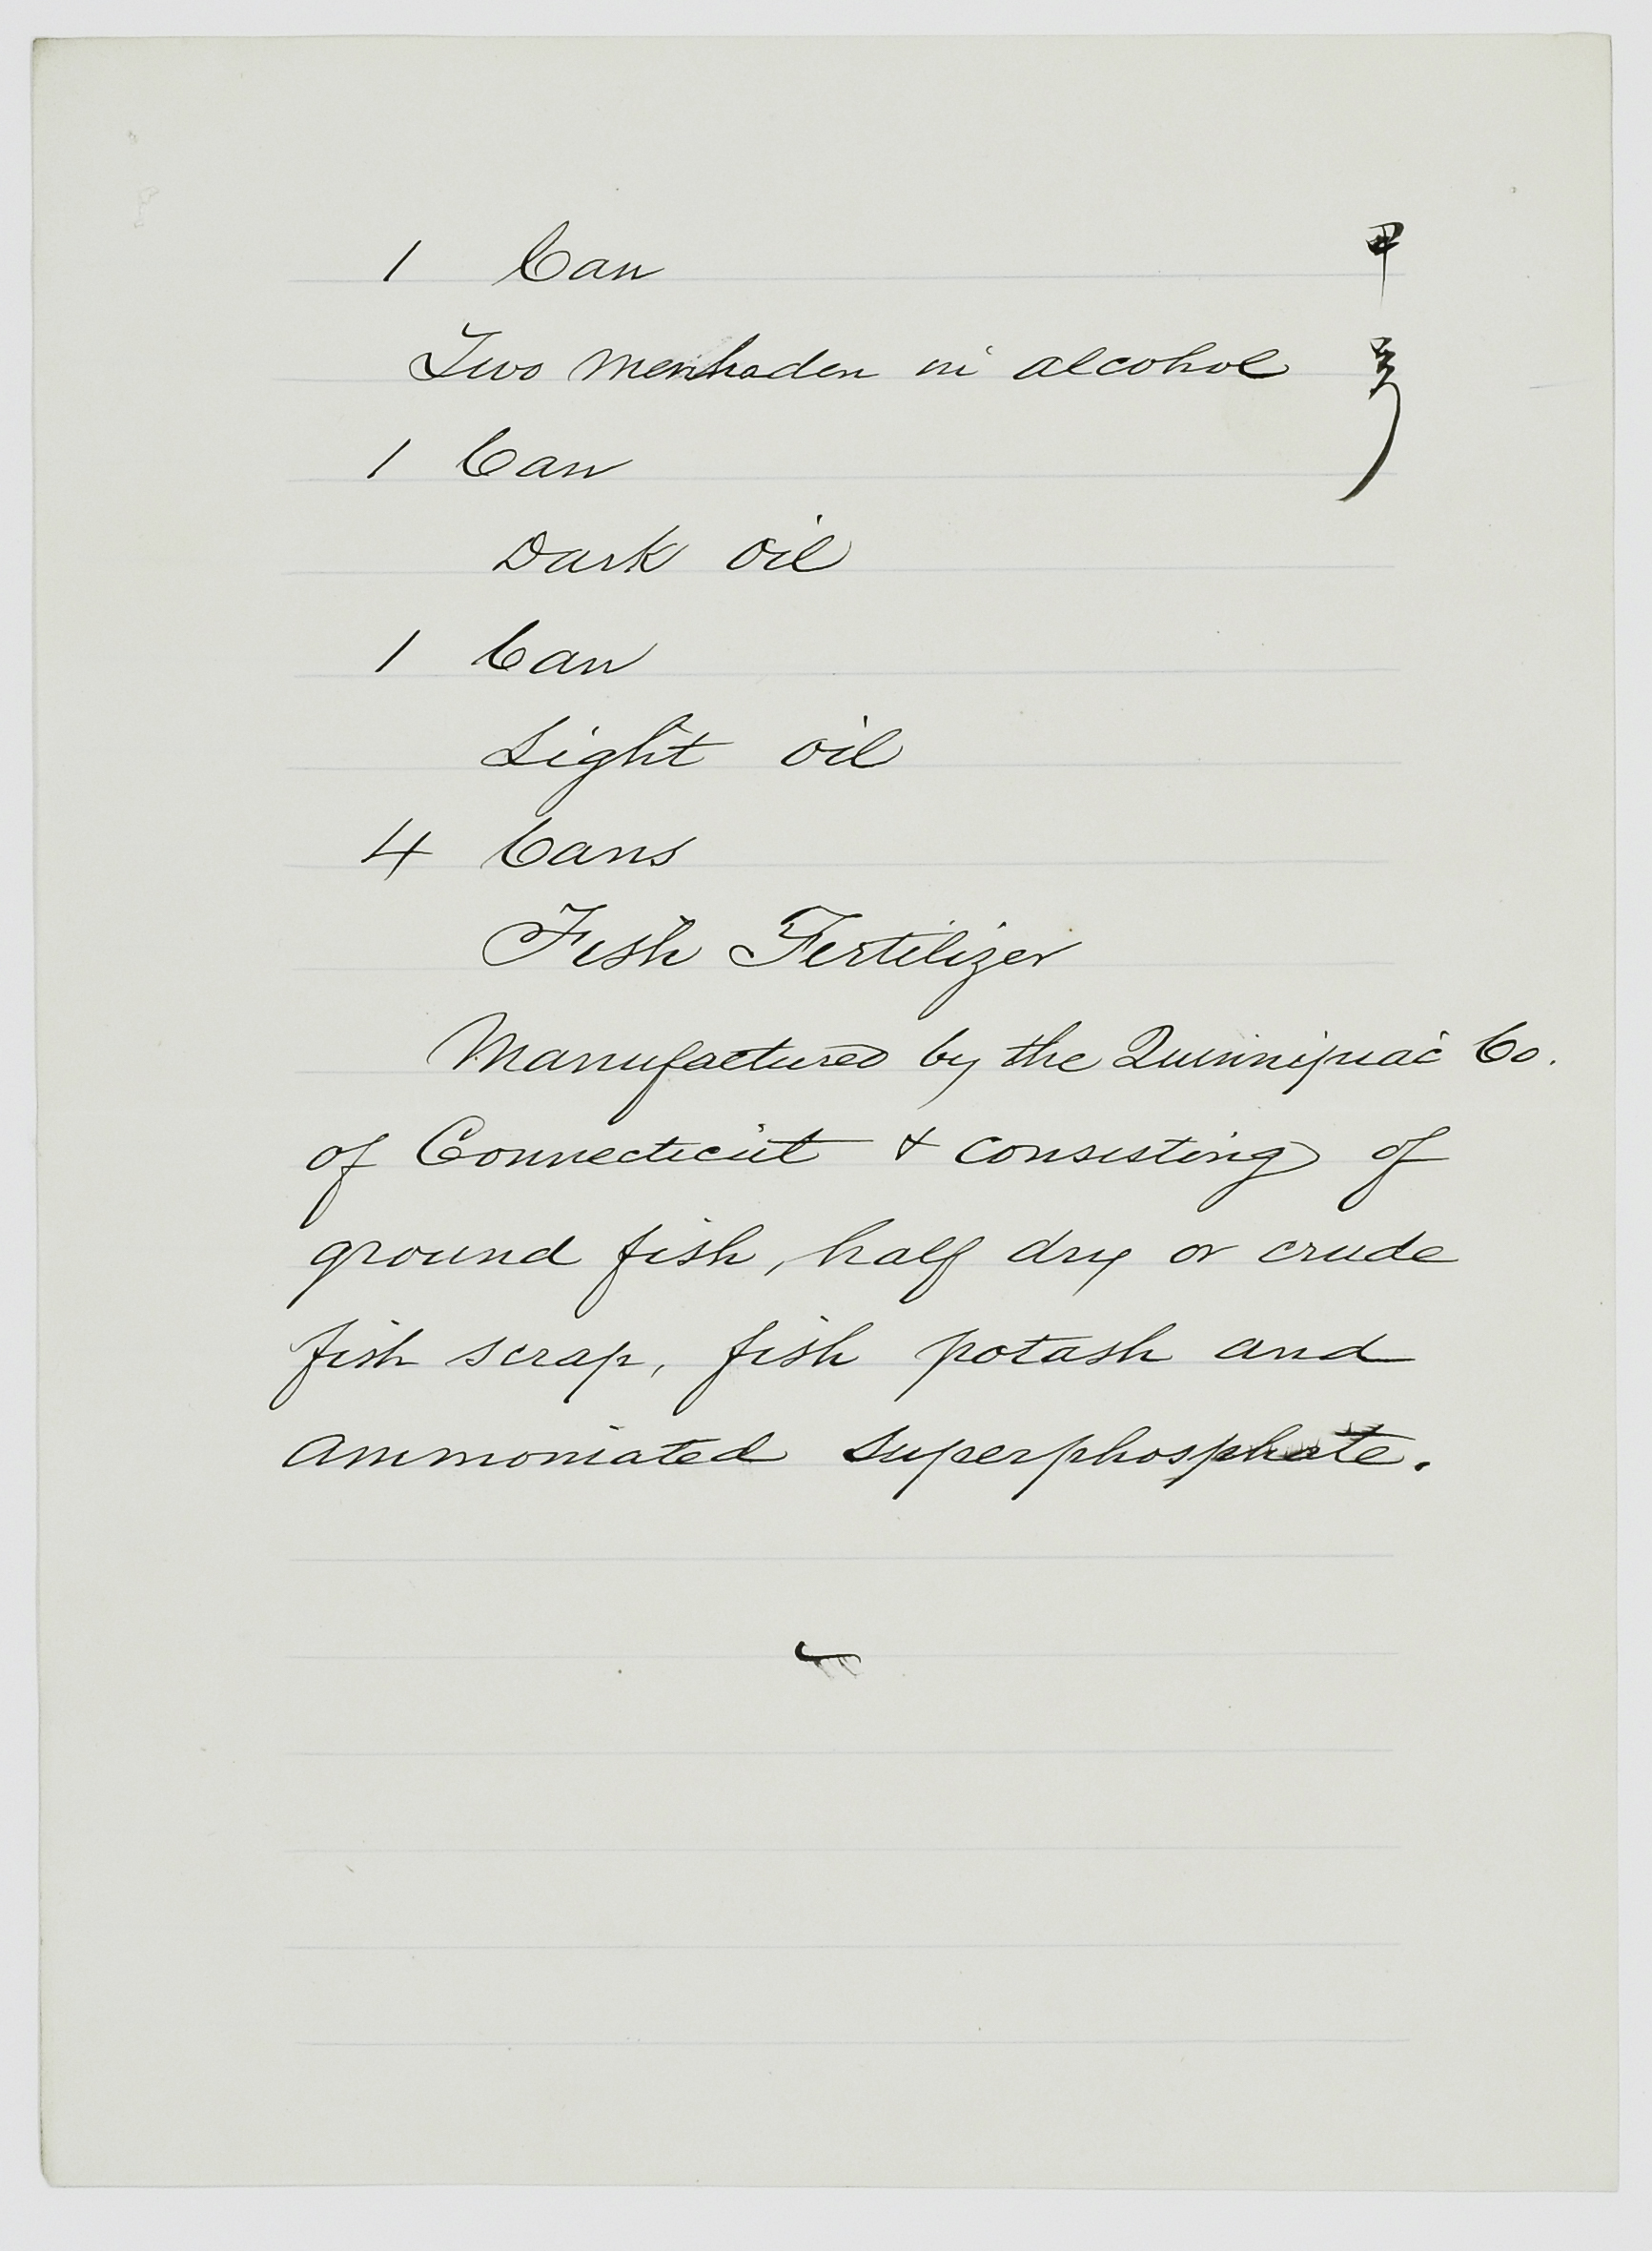 1 Can
Two menhaden in alcohol
1 Can
Dark Oil
1 Can
Light Oil
4 Cans
Fish Fertilizer
Manufactured by the Quinnipiac Co.
of Connecticut & consisting of
ground fish, half dry or crude
fish scrap, fish potash and
ammoniated superphosphate.